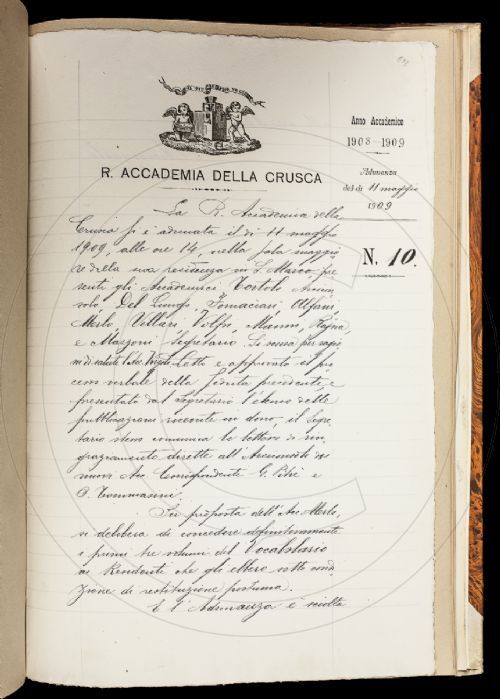 Anno Accademico
1908-1909
Adunanza
del dì 11 maggio
1909
N. 10.
R. ACCADEMIA DELLA CRUSCA
La R. Accademia della
Crusca si è adunata il dì 11 maggio
1909, alle ore 14, nella sala maggio
re della sua residenza in S. Marco, pre
senti gli Accademici Tortoli, Arcicon
solo, Del Lungo, Tommasini, Alfani,
Merlo, Villari, Volpi, Mannu, Rajna,
e Mazzoni, Segretario. Si scusa per ragio
ni di salute l'Ac. Letto e approvato il pro
cesso verbale della seduta precedente, e
presentato dal Segretario l'elenco delle
pubblicazioni ricevute in dono, il Segre
tario stesso comunica le lettere di rin
graziamento dirette all'Accademia dai
nuovi Acc. Corrispondente G. Pitrè e
O. Tommasini.
Su proposta dell'Acc. Merlo,
si delibera di concedere definitivamente
i primi tre volumi del Vocabolario
ai Residenti che gli ebbero sotto condi
zione di restituzione postuma.
E l'Adunanza è sciolta